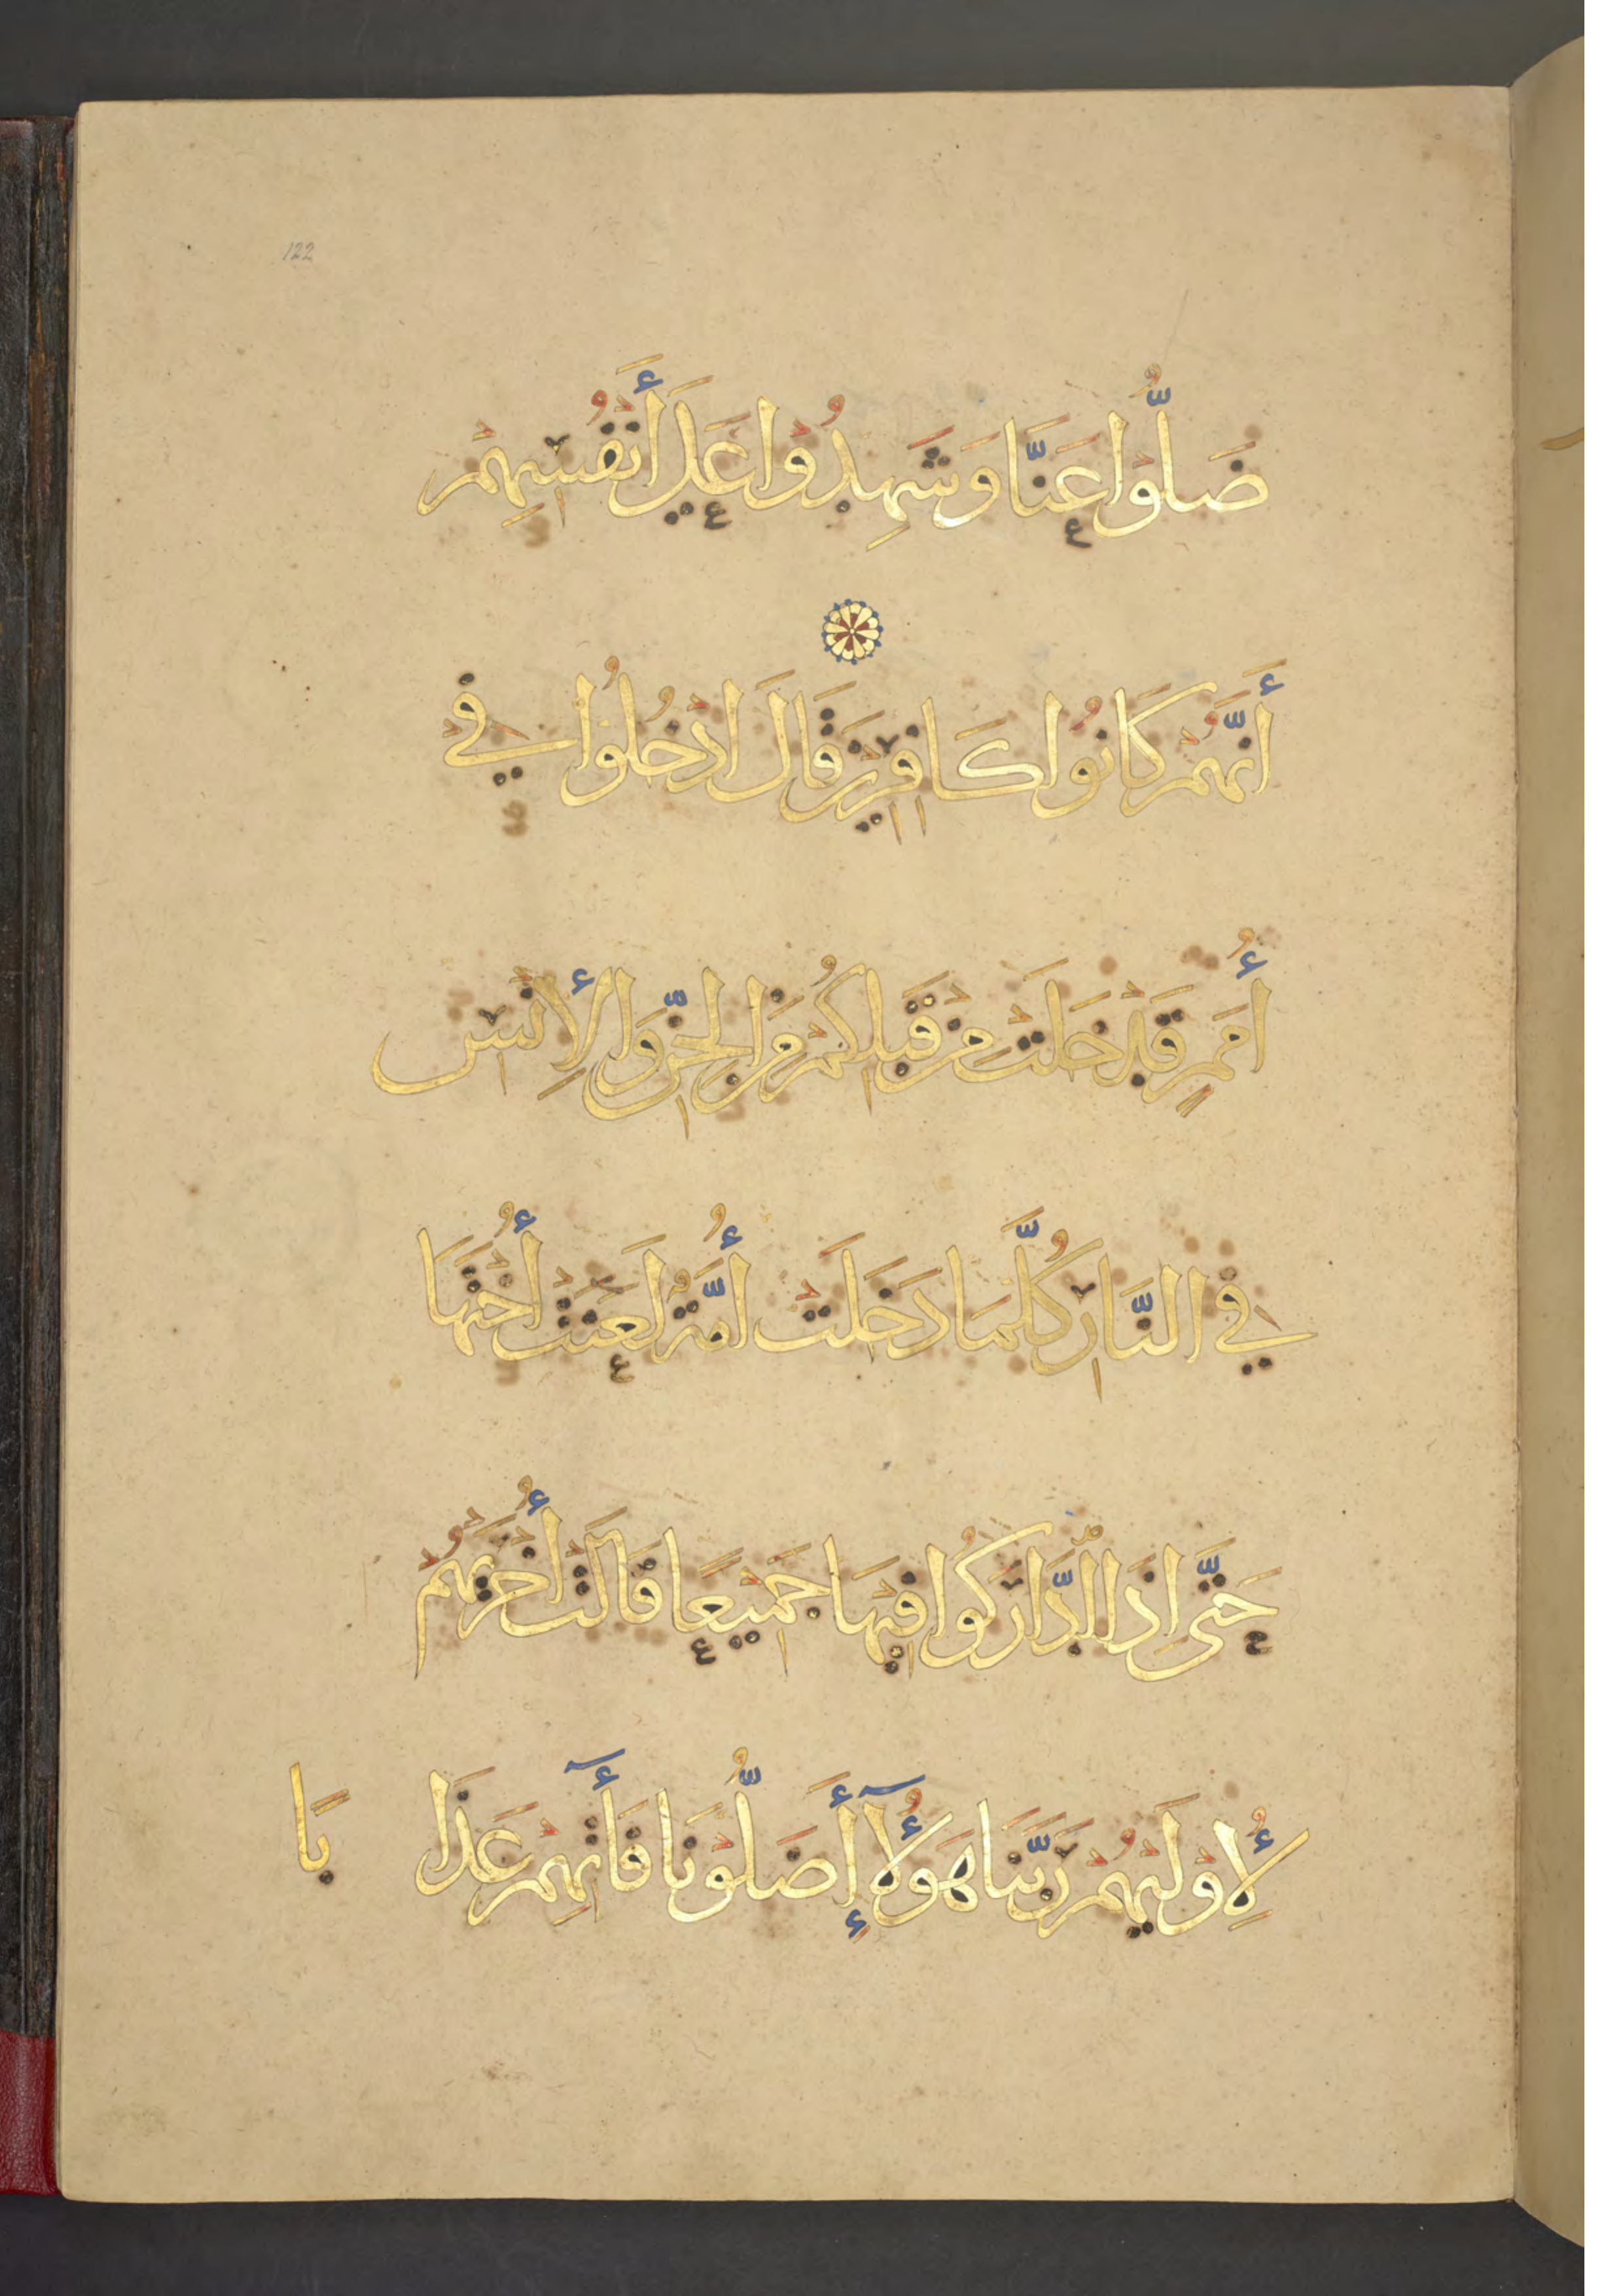 122
ضَلُّوْا عَنَّا وَشَهِدُوْا عَلَى أَنْفُسِهِمْ
أَنَّهُمْ كَانُوْا كَافِرِيْنَ قَالَ ادْخُلُوْا فِيْ
أُمَمٍ قَدْ خَلَتْ مِنْ قَبْلِكُمْ مِنَ الْجِنِّ وَالْإِنْسِ
فِيْ النَّارِ كُلَّمَا دَخَلَتْ أُمَّةٌ لَعَنَتْ أُخْتَهَا
حَتَّى إِذَا ادَّارَكُوْا فِيْهَا جَمِيْعًا قَالَتْ أُخْرَيهُمْ
لِأُوْلَيهُمْ رَبَّنَا هَؤُلَآءِ أَضَلُّوْنَا فَأٓتِهِمْ عَذَا بًا